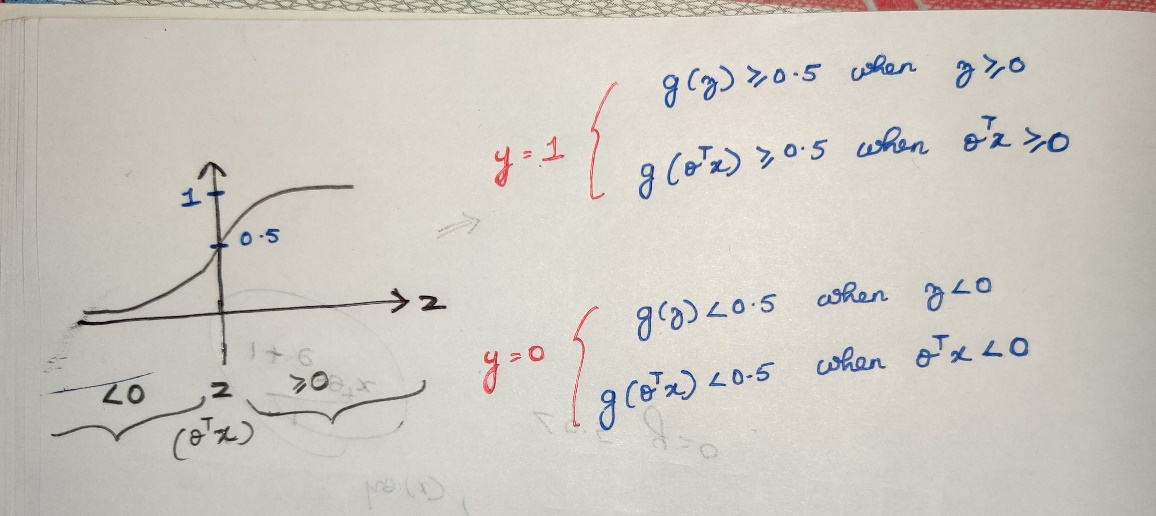 1
0.5
z
<0 z ≥0
(θᵀx)
y=1
g(z) ≥0.5 when z≥0
g(θᵀx) ≥0.5 when θᵀx ≥0
y=0
g(z) <0.5 when z<0
g(θᵀx) <0.5 when θᵀx <0